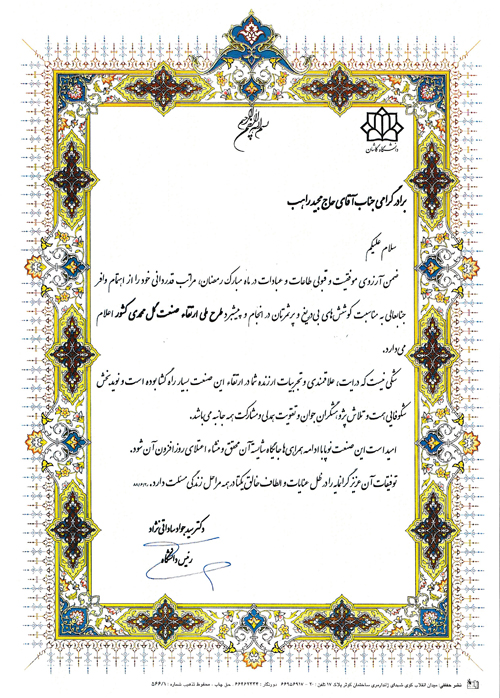 بسم الله الرحمن الرحیم
دانشگاه کاشان
برادر گرامی جناب آقای حاج مجید راهب
سلام علیکم
ضمن آرزوی موفقیت و قبولی طاعات و عبادات در ماه مبارک رمضان، مراتب قدردانی خود را از اهتمام وافر
جنابعالی به مناسبت کوشش‌های بی‌دریغ و پرثمرتان در انجام و پیشبرد طرح ملی ارتقاء صنعت گل محمدی کشور اعلام
می‌دارد.
شکی نیست که درایت، علاقمندی و تجربیات ارزنده شما در ارتقاء این صنعت بسیار راه گشا بوده است و نوید بخش
شکوفائی همت و تلاش پژوهشگران جوان و تقویت همدلی و مشارکت همه جانبه می‌باشد.
امید است این صنعت نوپا با ادامه همراهی‌ها جایگاه شایسته آن محقق و منشاء اعتلای روزافزون آن شود.
توفیقات آن عزیز گرانمایه را در ظل عنایات و الطاف خالق یکتا در همه مراحل زندگی مسئلت دارد.
دکتر سید جواد ساداتی نژاد
رئیس دانشگاه
نشر حقانی: میدان انقلاب کوی شهدای ژاندارمری ساختمان کوثر پلاک ۱۷ تلفن: ۲۰ - ۶۶۹۵۶۹۱۷ دورنگار: ۶۶۴۶۷۳۳۳ حق چاپ محفوظ تذهیب شماره: ۵۶۶/۱